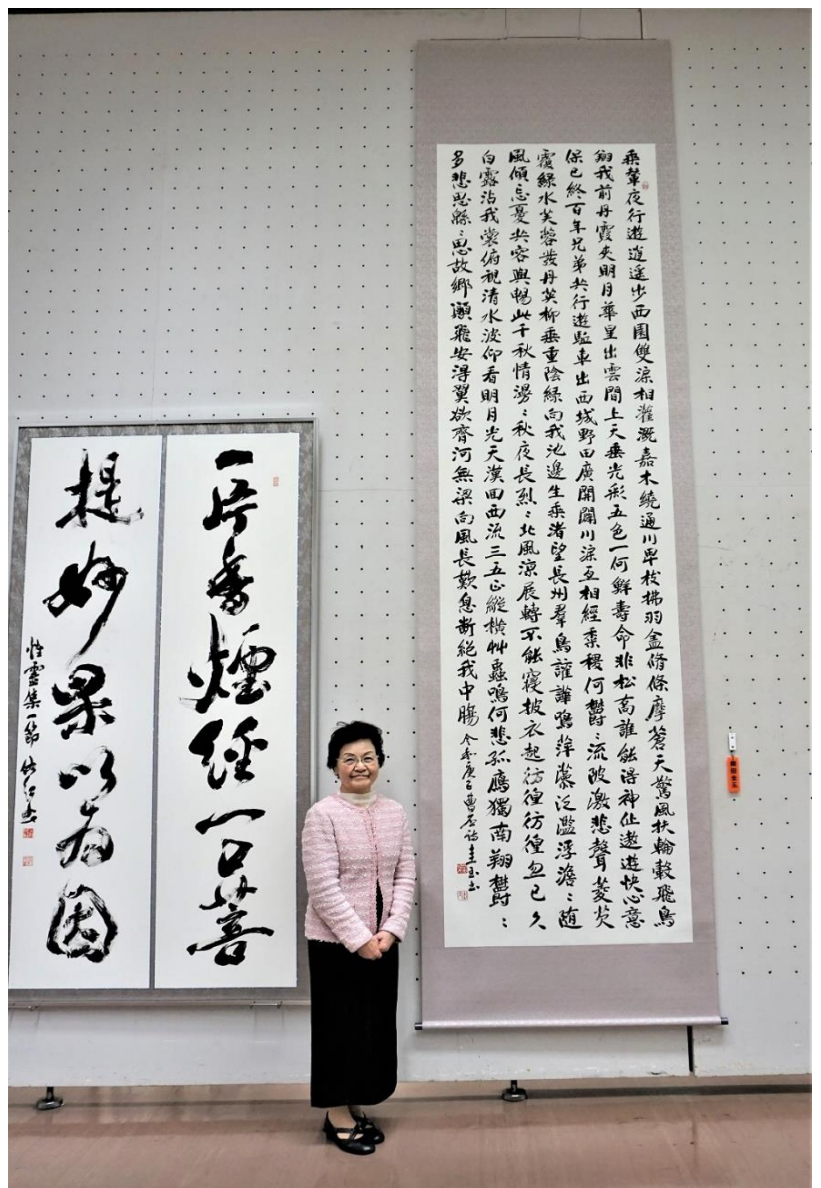 乘輦夜行遊逍遙步西園雙渠相灌溉嘉木繞通川卑枝拂羽蓋脩條摩蒼天驚風扶輪轂飛鳥
翔我前丹霞夾明月華星出雲間上天垂光彩五色一何鮮壽命非松喬誰能得神仙遨遊快心意
保己終百年兄弟共行遊驅車出西城野田廣開闢川渠互相經黍稷何鬱〻流波激悲聲菱芡
覆綠水芙蓉發丹英柳垂重陰綠向我池邊生乘渚望長州羣鳥讙譁鳴萍藻泛濫浮澹〻隨
風傾忘憂共容與暢此千秋情漫〻秋夜長烈〻北風涼展轉不能寢披衣起彷徨彷徨忽已久
白露沾我裳俯視清水波仰看明月光天漢回西流三五正縱橫艸蟲鳴何悲孤鴈獨南翔鬱〻
多悲思緜〻思故鄉願飛安得翼欲濟河無梁向風長歎息斷絕我中腸 令和庚子曹丕詩 圭玉書
一片香煙經一口菩
提妙果以為因
性靈集一節